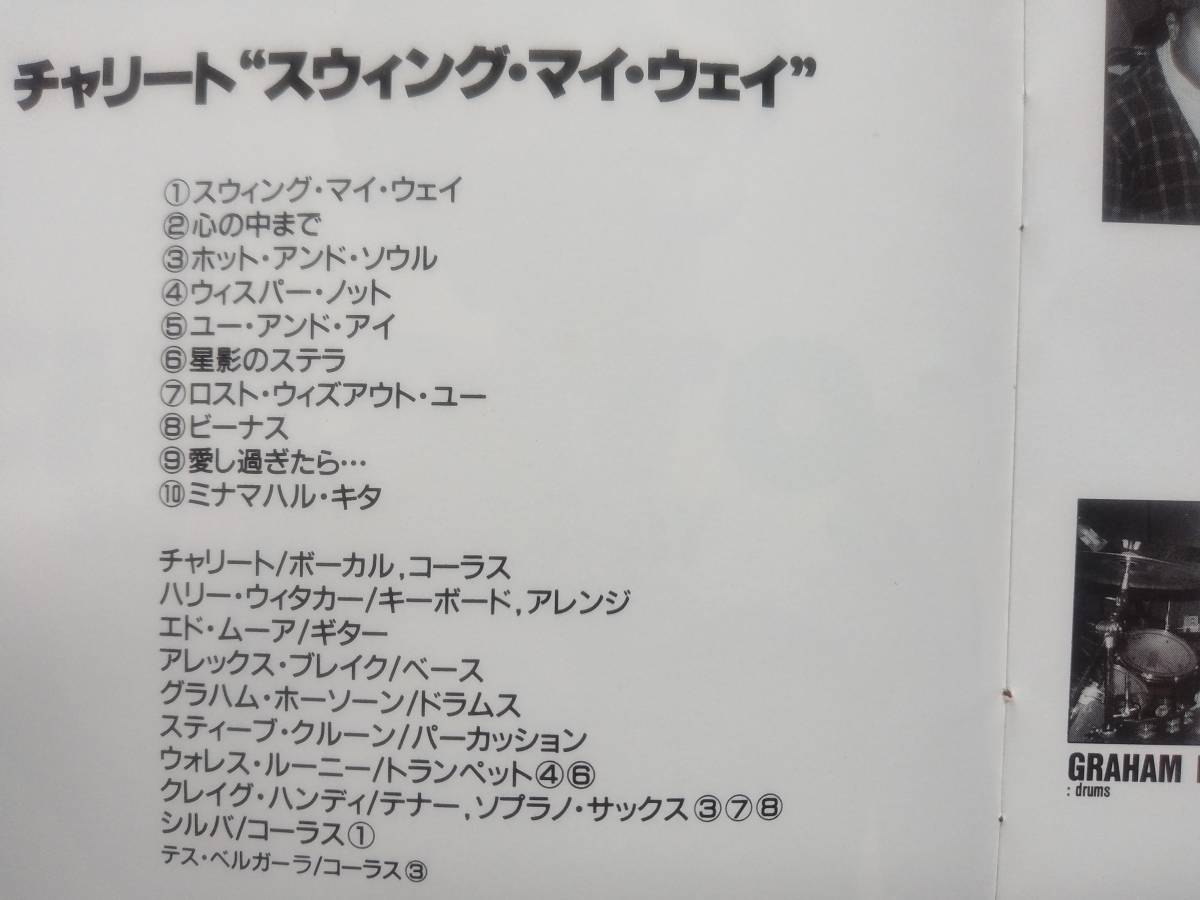 チャリート“スウィング・マイ・ウェイ”
①スウィング・マイ・ウェイ
②心の中まで
③ホット・アンド・ソウル
④ウィスパー・ノット
⑤ユー・アンド・アイ
⑥星影のステラ
⑦ロスト・ウィズアウト・ユー
⑧ビーナス
⑨愛し過ぎたら…
⑩ミナマハル・キタ
チャリート/ボーカル,コーラス
ハリー・ウィタカー/キーボード,アレンジ
エド・ムーア/ギター
アレックス・ブレイク/ベース
グラハム・ホーソーン/ドラムス
スティーブ・クルーン/パーカッション
ウォレス・ルーニー/トランペット④⑥
クレイグ・ハンディ/テナー,ソプラノ・サックス③⑦⑧
シルバ/コーラス①
テス・ベルガーラ/コーラス③
GRAHAM
: drums